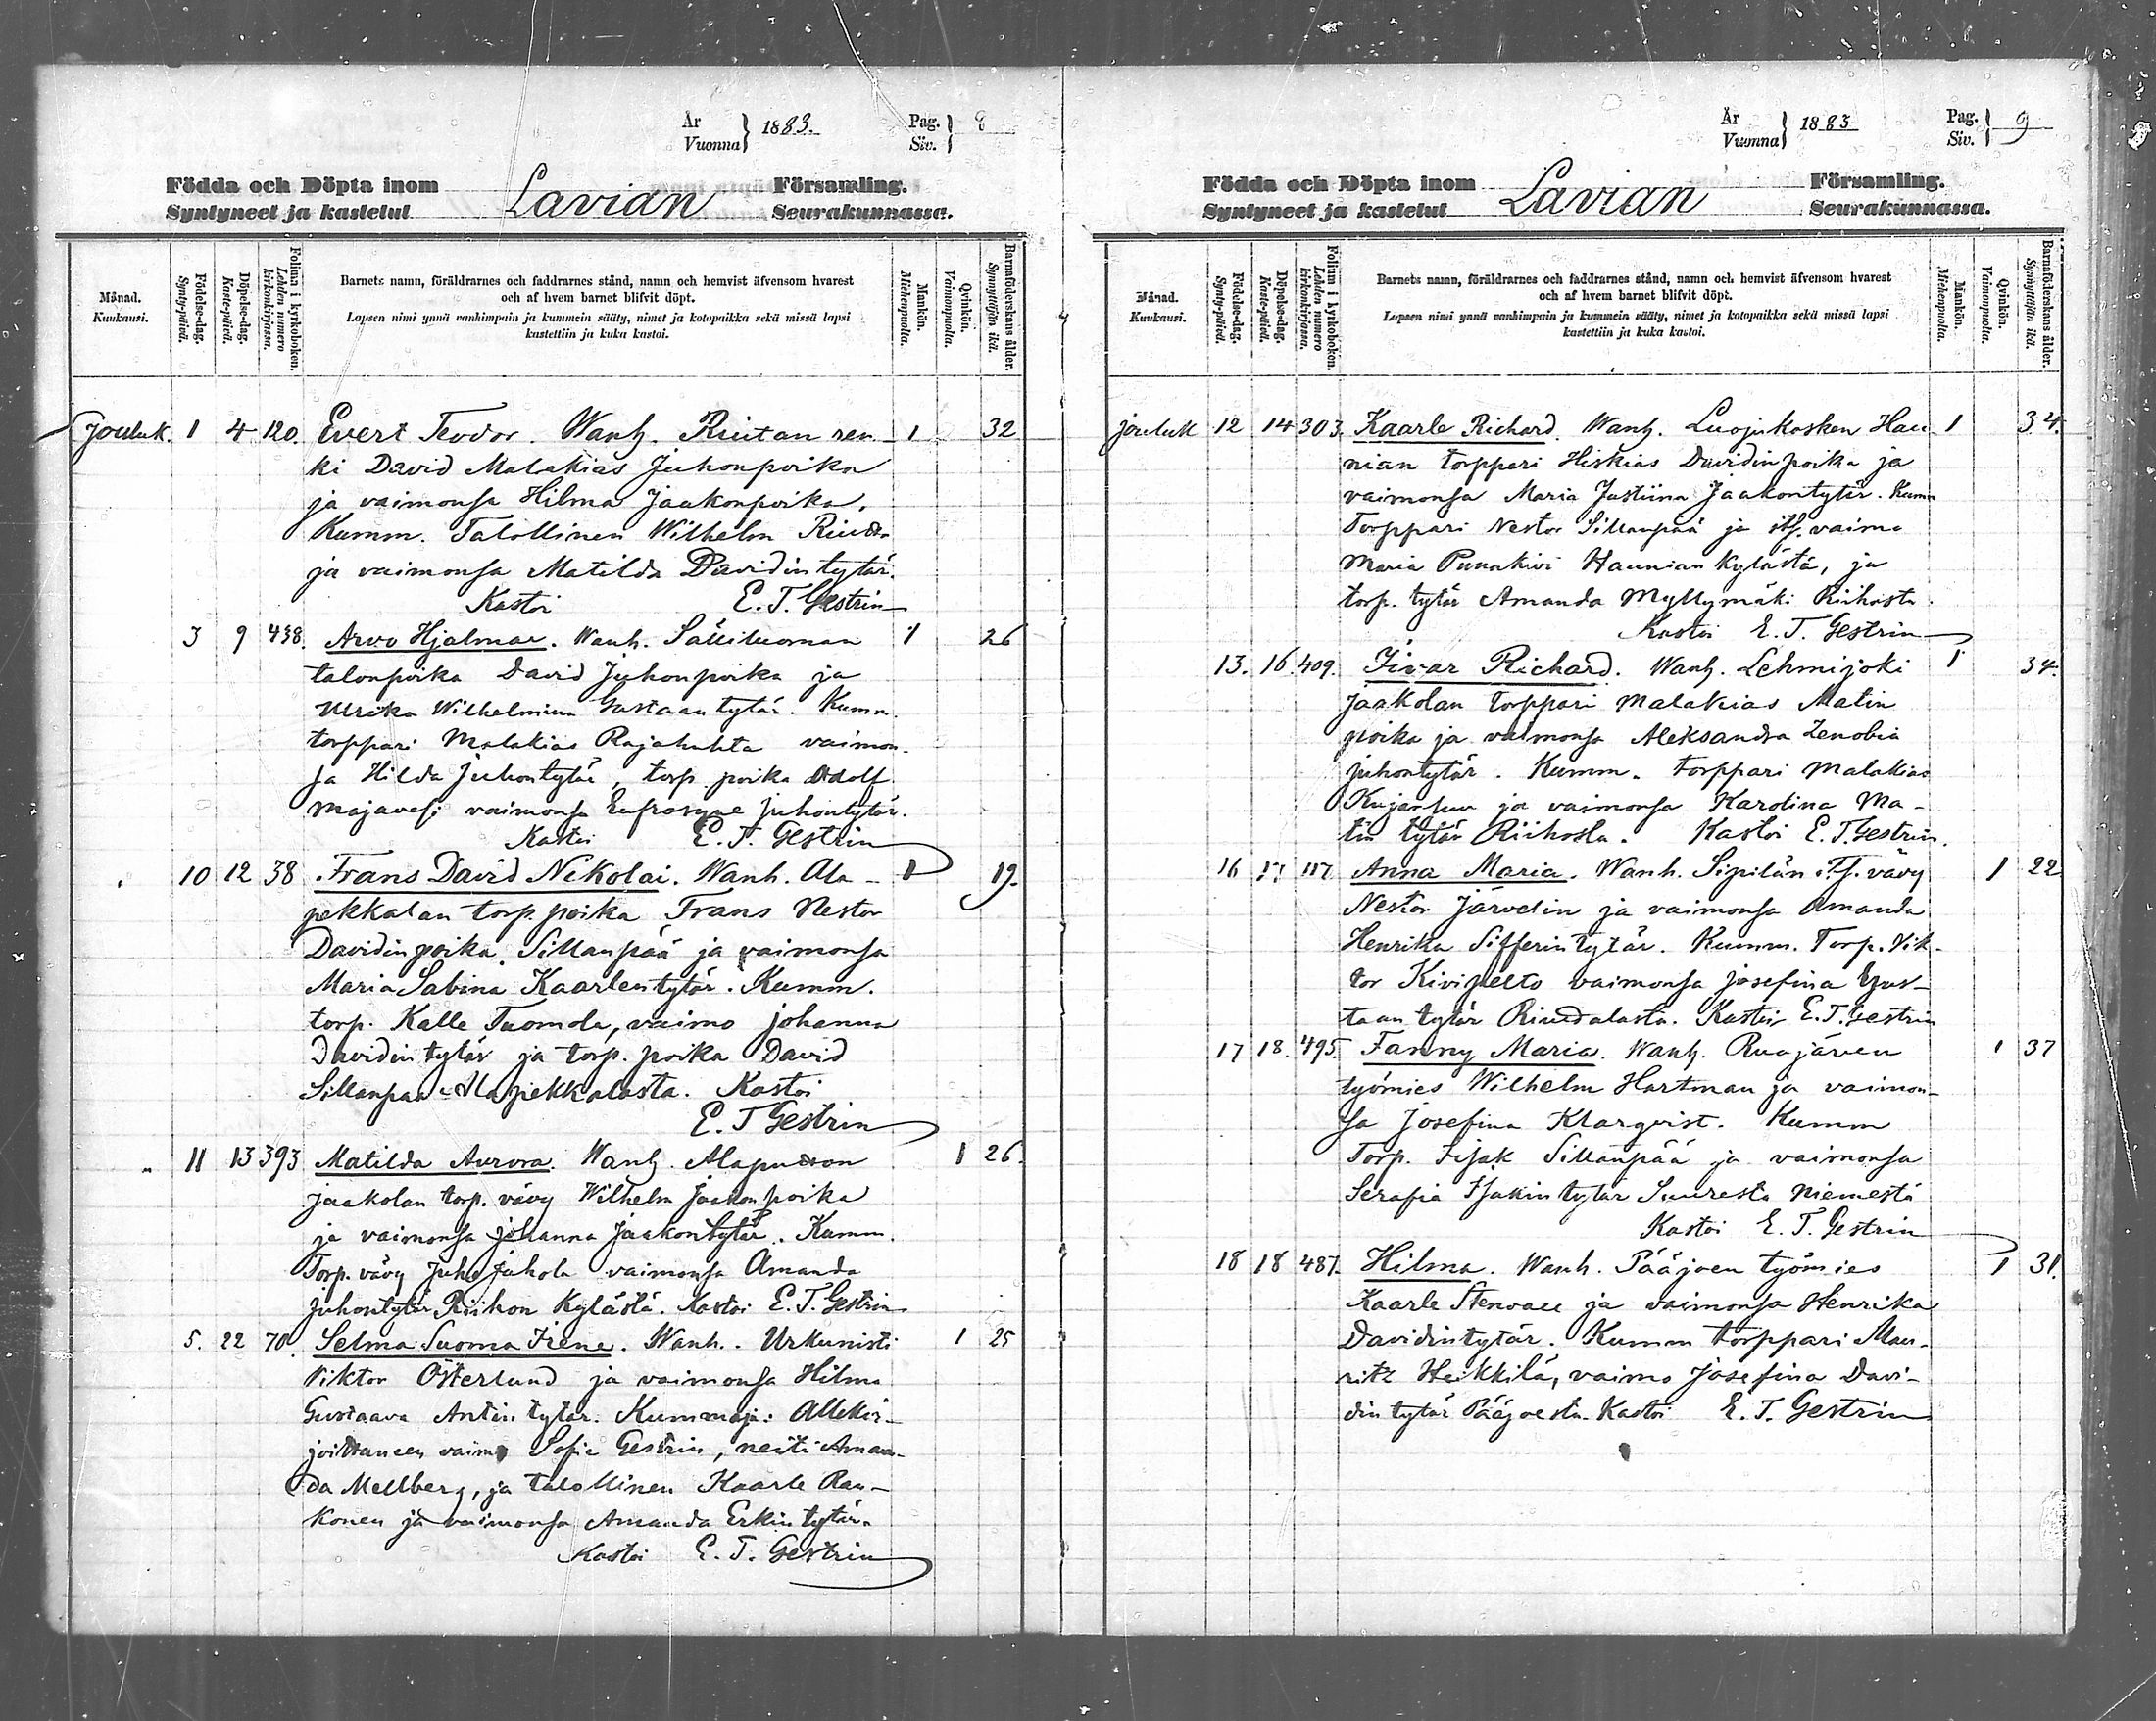 År
Vuonna } 1883.
Pag.
Siv. } 8
Födda och Döpta inom
Syntyneet ja kastetut
Lavian
Församling.
Seurakunnassa.
Månad.
Kuukausi.
Födelse-dag.
Syntypäivä.
Döpelse-dag.
Kaste-päivä.
Folium i kyrkoboken.
Lehden numero kirkonkirjassa.
Barnets namn, föräldrarnes och faddrarnes stånd, namn och hemvist äfvensom hvarest
och af hvem barnet blifvit döpt.
Lapsen nimi ynnä vanhimpain ja kummein sääty, nimet ja kotopaikka sekä missä lapsi
kastettiin ja kuka kastoi.
Mankön.
Miehenpuolta.
Qvinkön.
Vaimonpuolta.
Barnaföderskans ålder.
Synnyttäjän ikä.
Jouluk. 1 4 120. Evert Teodor. Wanh. Riutan ren- 1 32
ki David Malakias Juhonpoika
ja vaimonsa Hilma Jaakonpoika.
Kumm. Talollinen Wilhelm
ja vaimonsa Matilda Davidin tytär.
Kastoi E. T. Gestrin
3 9 438. Arvo Hjalmar. Wanh. Sälliluoman 1 26
talonpoika David Juhonpoika ja
Ulrika Wilhelmina Gustaan tytär. Kumm.
torppari Malakias Rajahuhta vaimon-
sa Hilda Juhontytär, torp. poika Adolf
Majavesi vaimonsa Eufrosyne Juhontytär.
Kastoi E. T. Gestrin
10 12 38 Frans David Nikolai. Wanh. Ala- 1 19.
pekkalan torp. poika Frans Nestor
Davidinpoika Sillanpää ja vaimonsa
Maria Sabina Kaarlentytär. Kumm.
torp. Kalle Tuomola, vaimo Johanna
Davidin tytär ja torp. poika David
Sillanpää Alapekkalasta. Kastoi
E. T Gestrin
" 11 13 393 Matilda Aurora. Wanh. 1 26.
Jaakolan torp. vävy Wilhelm Jaakonpoika
ja vaimonsa Johanna Jaakontytär. Kumm.
Torp. vävy Juho Juhola vaimonsa Amanda
Juhontytär Riihon kylästä. Kastoi E. T. Gestrin
5. 22 70. Selma Suoma Irene. Wanh. Urkunisti 1 25
Viktor Österlund ja vaimonsa Hilma
Gustaava Antin tytär. Kummaja: Allekir-
joittaneen vaimo Sofie Gestrin, neiti Aman-
da Mellberg, ja talollinen Kaarle Ran-
konen ja vaimonsa Amanda Erkin tytär.
Kastoi E. T. Gestrin
År
Vuonna } 1883
Pag.
Siv. } 9
Födda och Döpta inom
Syntyneet ja kastetut
Lavian
Församling.
Seurakunnassa.
Månad.
Kuukausi.
Födelse-dag.
Syntypäivä.
Döpelse-dag.
Kaste-päivä.
Folium i kyrkoboken.
Lehden numero kirkonkirjassa.
Barnets namn, föräldrarnes och faddrarnes stånd, namn och hemvist äfvensom hvarest
och af hvem barnet blifvit döpt.
Lapsen nimi ynnä vanhimpain ja kummein sääty, nimet ja kotopaikka sekä missä lapsi
kastettiin ja kuka kastoi.
Mankön.
Miehenpuolta.
Qvinkön.
Vaimonpuolta.
Barnaföderskans ålder.
Synnyttäjän ikä.
Jouluk 12 14 303. Kaarle Richard. Wanh. Luojukosken Hau- 1 34.
nian torppari Hiskias Davidinpoika ja
vaimonsa Maria Justiina Jaakontytär. Kumm
Torppari Nestor Sillanpää ja its. vaimo
Maria Punakivi Haunian kylästä, ja
torp. tytär Amanda Myllymäki Riihosta.
Kastoi E. T. Gestrin
13. 16. 409. Iivar Richard. Wanh. Lehmijoki 1 34.
Jaakolan torppari Malakias Matin
poika ja vaimonsa Aleksandra Zenobia
Juhontytär. Kumm. torppari Malakias
Kujansuu ja vaimonsa Karolina Ma-
tin tytär Riihosta. Kastoi E. T. Gestrin.
16 17 117 Anna Maria. Wanh. Sipilän its. vävy 1 22
Nestor Järvelin ja vaimonsa Amanda
Henrika Sifferin tytär. Kumm. Torp. Vik-
tor Kivipelto vaimonsa Josefina Gus-
taan tytär Riuddalasta. Kastoi E. T. Gestrin
17 18. 495. Fanny Maria. Wanh. Ruojärven 1 37
työmies Wilhelm Hartman ja vaimon-
sa Josefina Klarqvist. Kumm
Torp. Isak Sillanpää ja vaimonsa
Serafia Isakin tytär Suuresta Niemestä
Kastoi E. T. Gestrin
18 18 487. Hilma. Wanh. Pääjoen työmies 1 31.
Kaarle Stenvall ja vaimonsa Henrika
Davidintytär. Kumm torppari Mau-
ritz Heikkilä, vaimo Josefina Davi-
din tytär Pääjoesta. Kastoi E. T. Gestrin